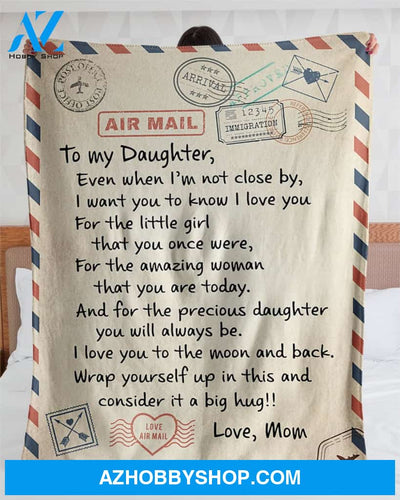 AZ
HOBBY SHOP
POST OFFICE
POST OFFICE
ARRIVAL
12345
IMMIGRATION
AIR MAIL
To my Daughter,
Even when I'm not close by,
I want you to know I love you
For the little girl
that you once were,
For the amazing woman
that you are today.
And for the precious daughter
you will always be.
I love you to the moon and back.
Wrap yourself up in this and
consider it a big hug!!
Love, Mom
LOVE
AIR MAIL
AZHOBBYSHOP.COM